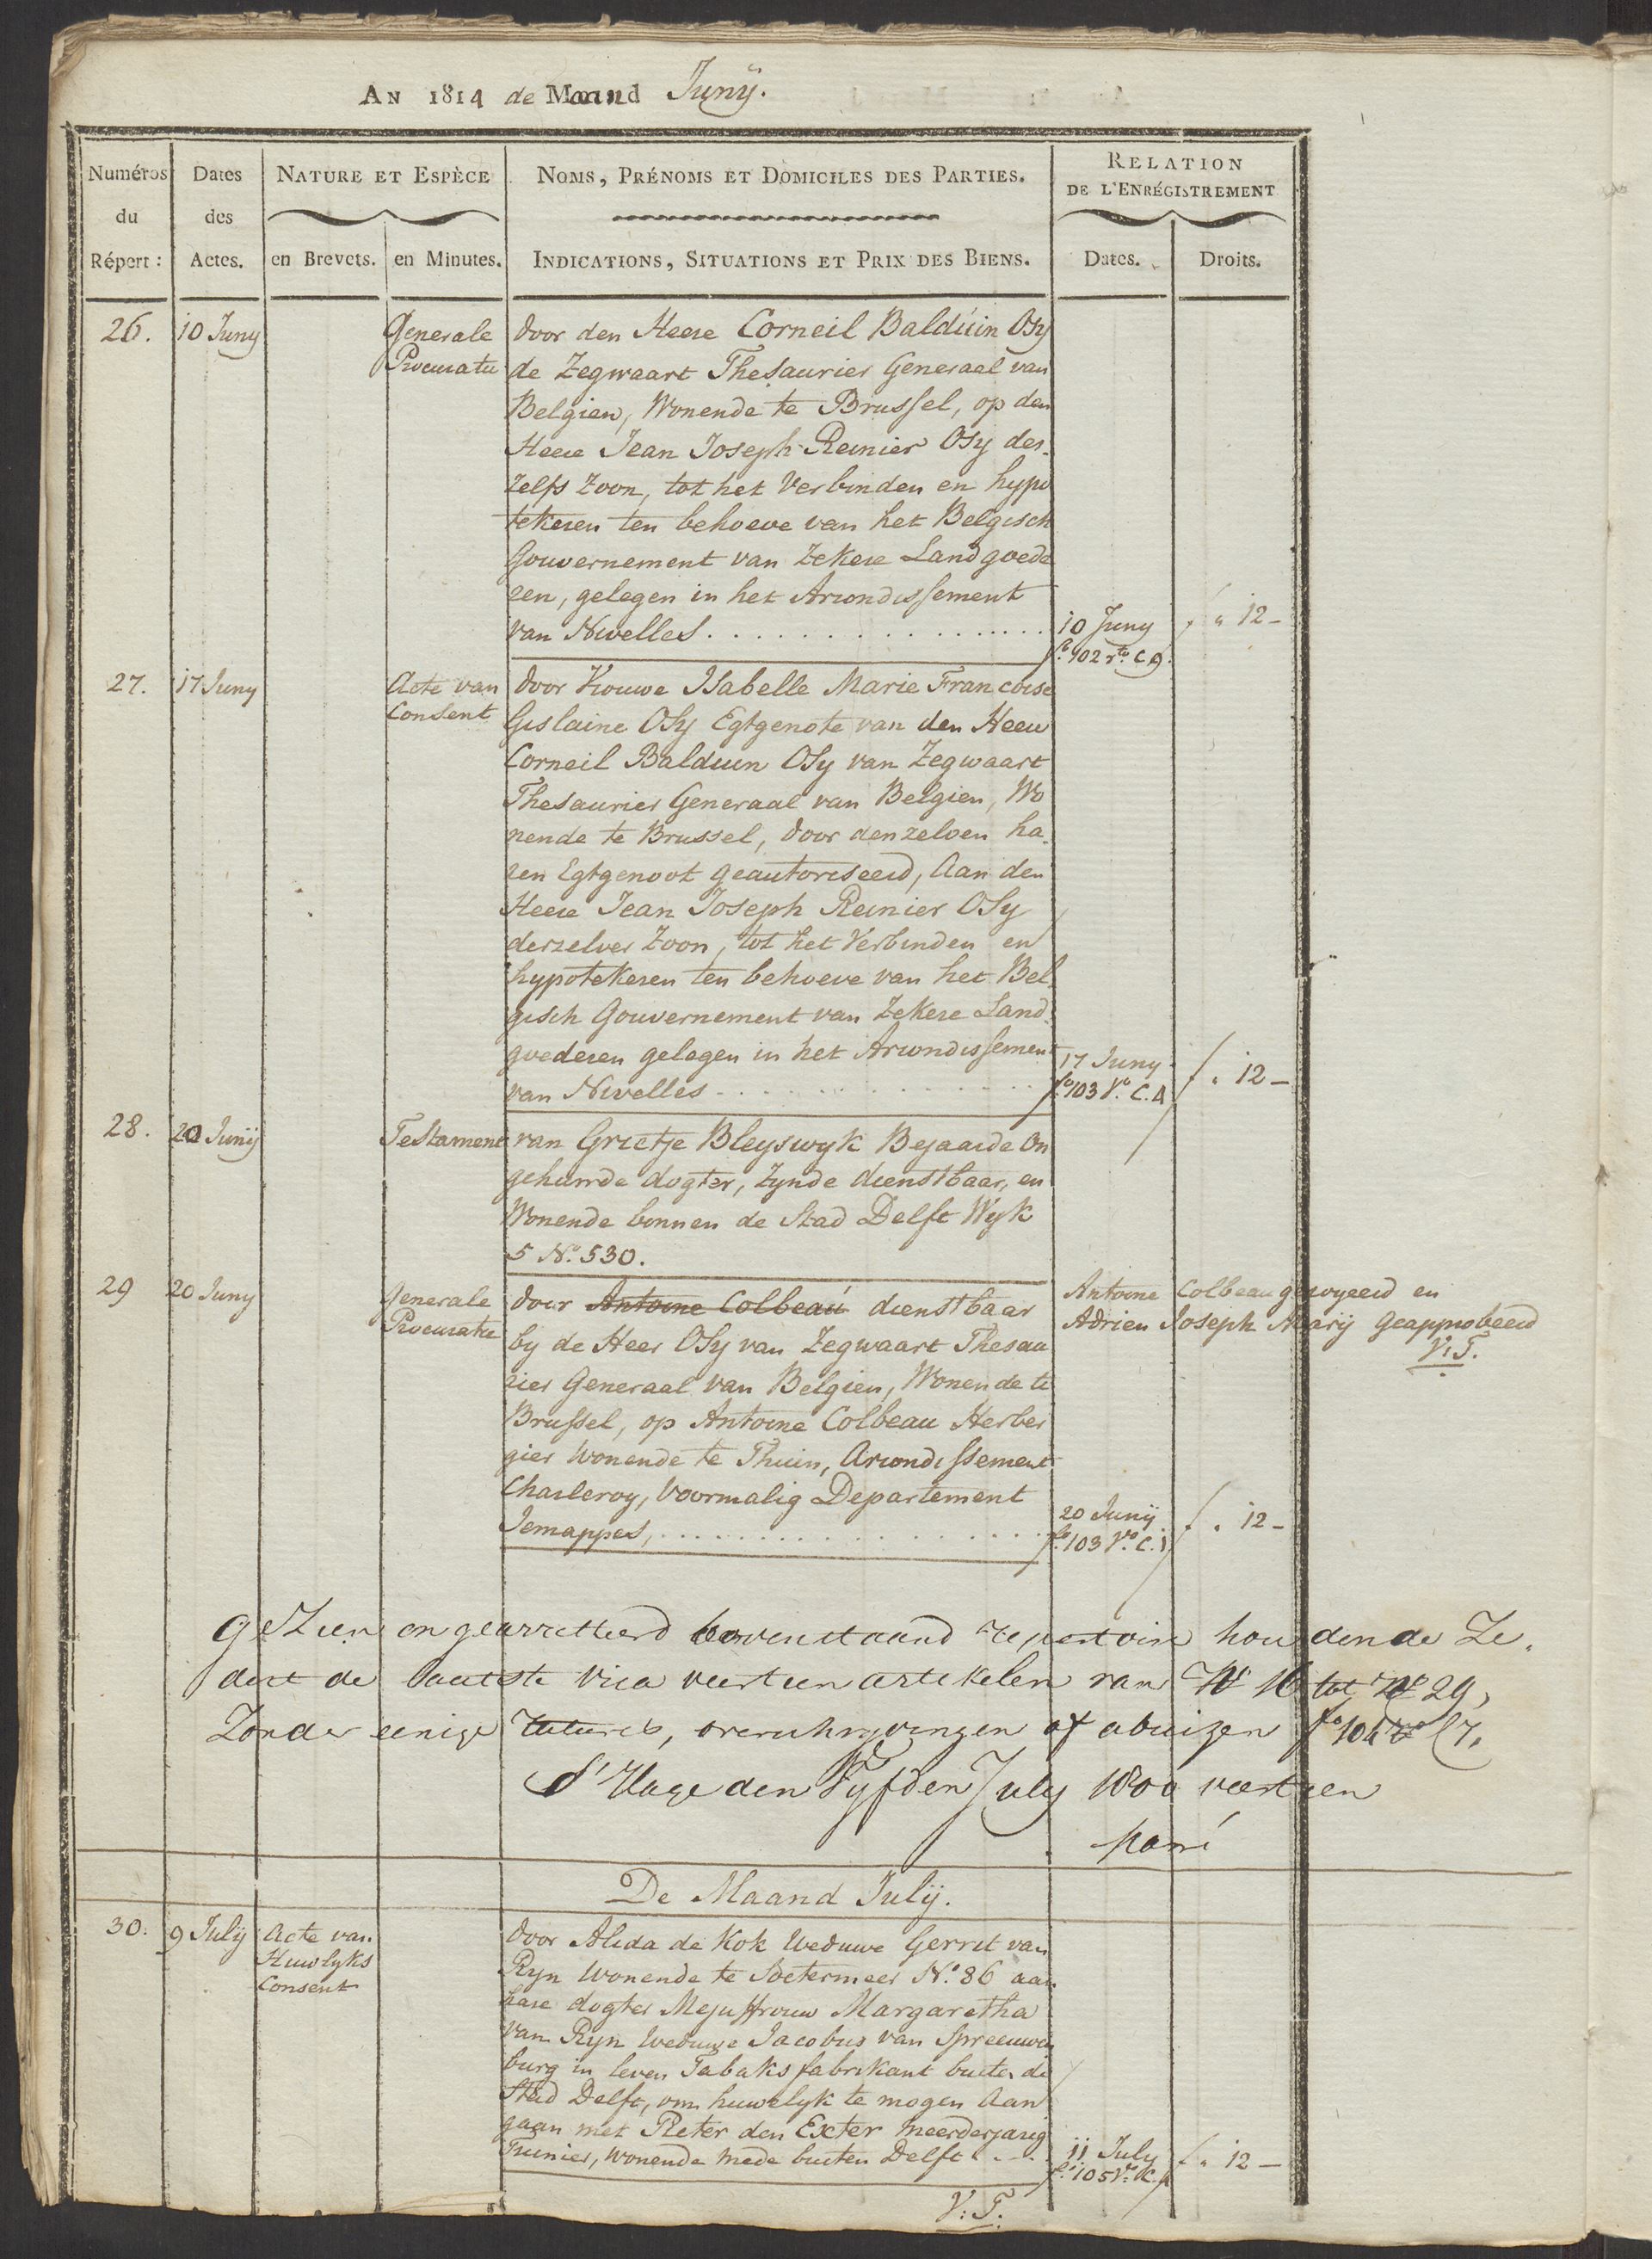 AN 1814 de Maand Junÿ.
Numéros du Répert:
Dates des Actes.
NATURE ET ESPÈCE
en Brevets.
en Minutes.
NOMS, PRÉNOMS ET DOMICILES DES PARTIES.
INDICATIONS, SITUATIONS ET PRIX DES BIENS.
RELATION
DE L'ENRÉGISTREMENT
Dates.
Droits.
26. 10 Juny
Generale
Procuratie
door den Heere Corneil Balduin Osy
de Zegwaart Thesaurier Generaal van
Belgien, Wonende te Brussel, op den
Heere Jean Joseph Reinier Osy des-
zelfs Zoon, tot het Verbinden en hypo
tekeren ten behoeve van het Belgisch
Gouvernement van Zekere Landgoede
ren, gelegen in het Arrondissement
van Nivelles
10 Juny
fo. 102 ro. C 9.
" 12 -
27. 17 Juny
Acte van
Consent
door Vrouwe Isabelle Marie Francoise
Gislaine Osy Egtgenote van den Heere
Corneil Balduin Osy van Zegwaart
Thesaurier Generaal van Belgien, Wo
nende te Brussel, door denzelven ha-
ren Egtgenoot geautoriseerd, Aan den
Heere Jean Joseph Reinier Osy
derzelver Zoon, tot het Verbinden en
hypotekeren ten behoeve van het Bel
gisch Gouvernement van Zekere Land
goederen gelegen in het Arrondissement
van Nivelles
17 Juny
fo. 103 Vo. C. 4
f " 12 -
28. 20 Junÿ
Testament
van Grietje Bleyswyk Bejaarde On
gehuwde dogter, Zynde dienstbaar, en
Wonende binnen de Stad Delft Wyk
5 No. 530.
29 20 Juny
Generale
Procuratie
door Antoine Colbeau dienstbaar
by de Heer Osy van Zegwaart Thesau
rier Generaal van Belgien, Wonende te
Brussel, op Antoine Colbeau Herber
gier Wonende te Thuin, Arrondissement
Charleroy, Voormalig Departement
Jemappes,
Antoine Colbeau geroyeerd en
Adrien Joseph Marÿ Geapprobeerd
V: T.
20 Junÿ
fo. 103 Vo. C. 1
f " 12 -
Gezien en gearresteerd bovenstaand repertoire houdende Ze-
dert de laatste visa veertien artikelen van No 16 tot No 29,
Zonder eenige ratures, overschryvingen of abuizen fo 104 Vo C 7.
S'Hage den Vyfden July 1800 veertien
De Maand Julÿ.
30. 9 Julÿ
Acte van
Huwlyks
Consent
door Alida de Kok Weduwe Gerrit van
Ryn Wonende te Soetermeer No. 86 aan
hare dogter Mejuffrouw Margaretha
van Ryn Weduwe Jacobus van Spreeuwen
burg in leven Tabaksfabrikant buiten de
Stad Delft, om huwelyk te mogen Aan
gaan met Pieter den Exter meerderjarig
Tuinier, Wonende mede buiten Delft
11 July
fo. 105 Vo. K.
f " 12 -
V: T.